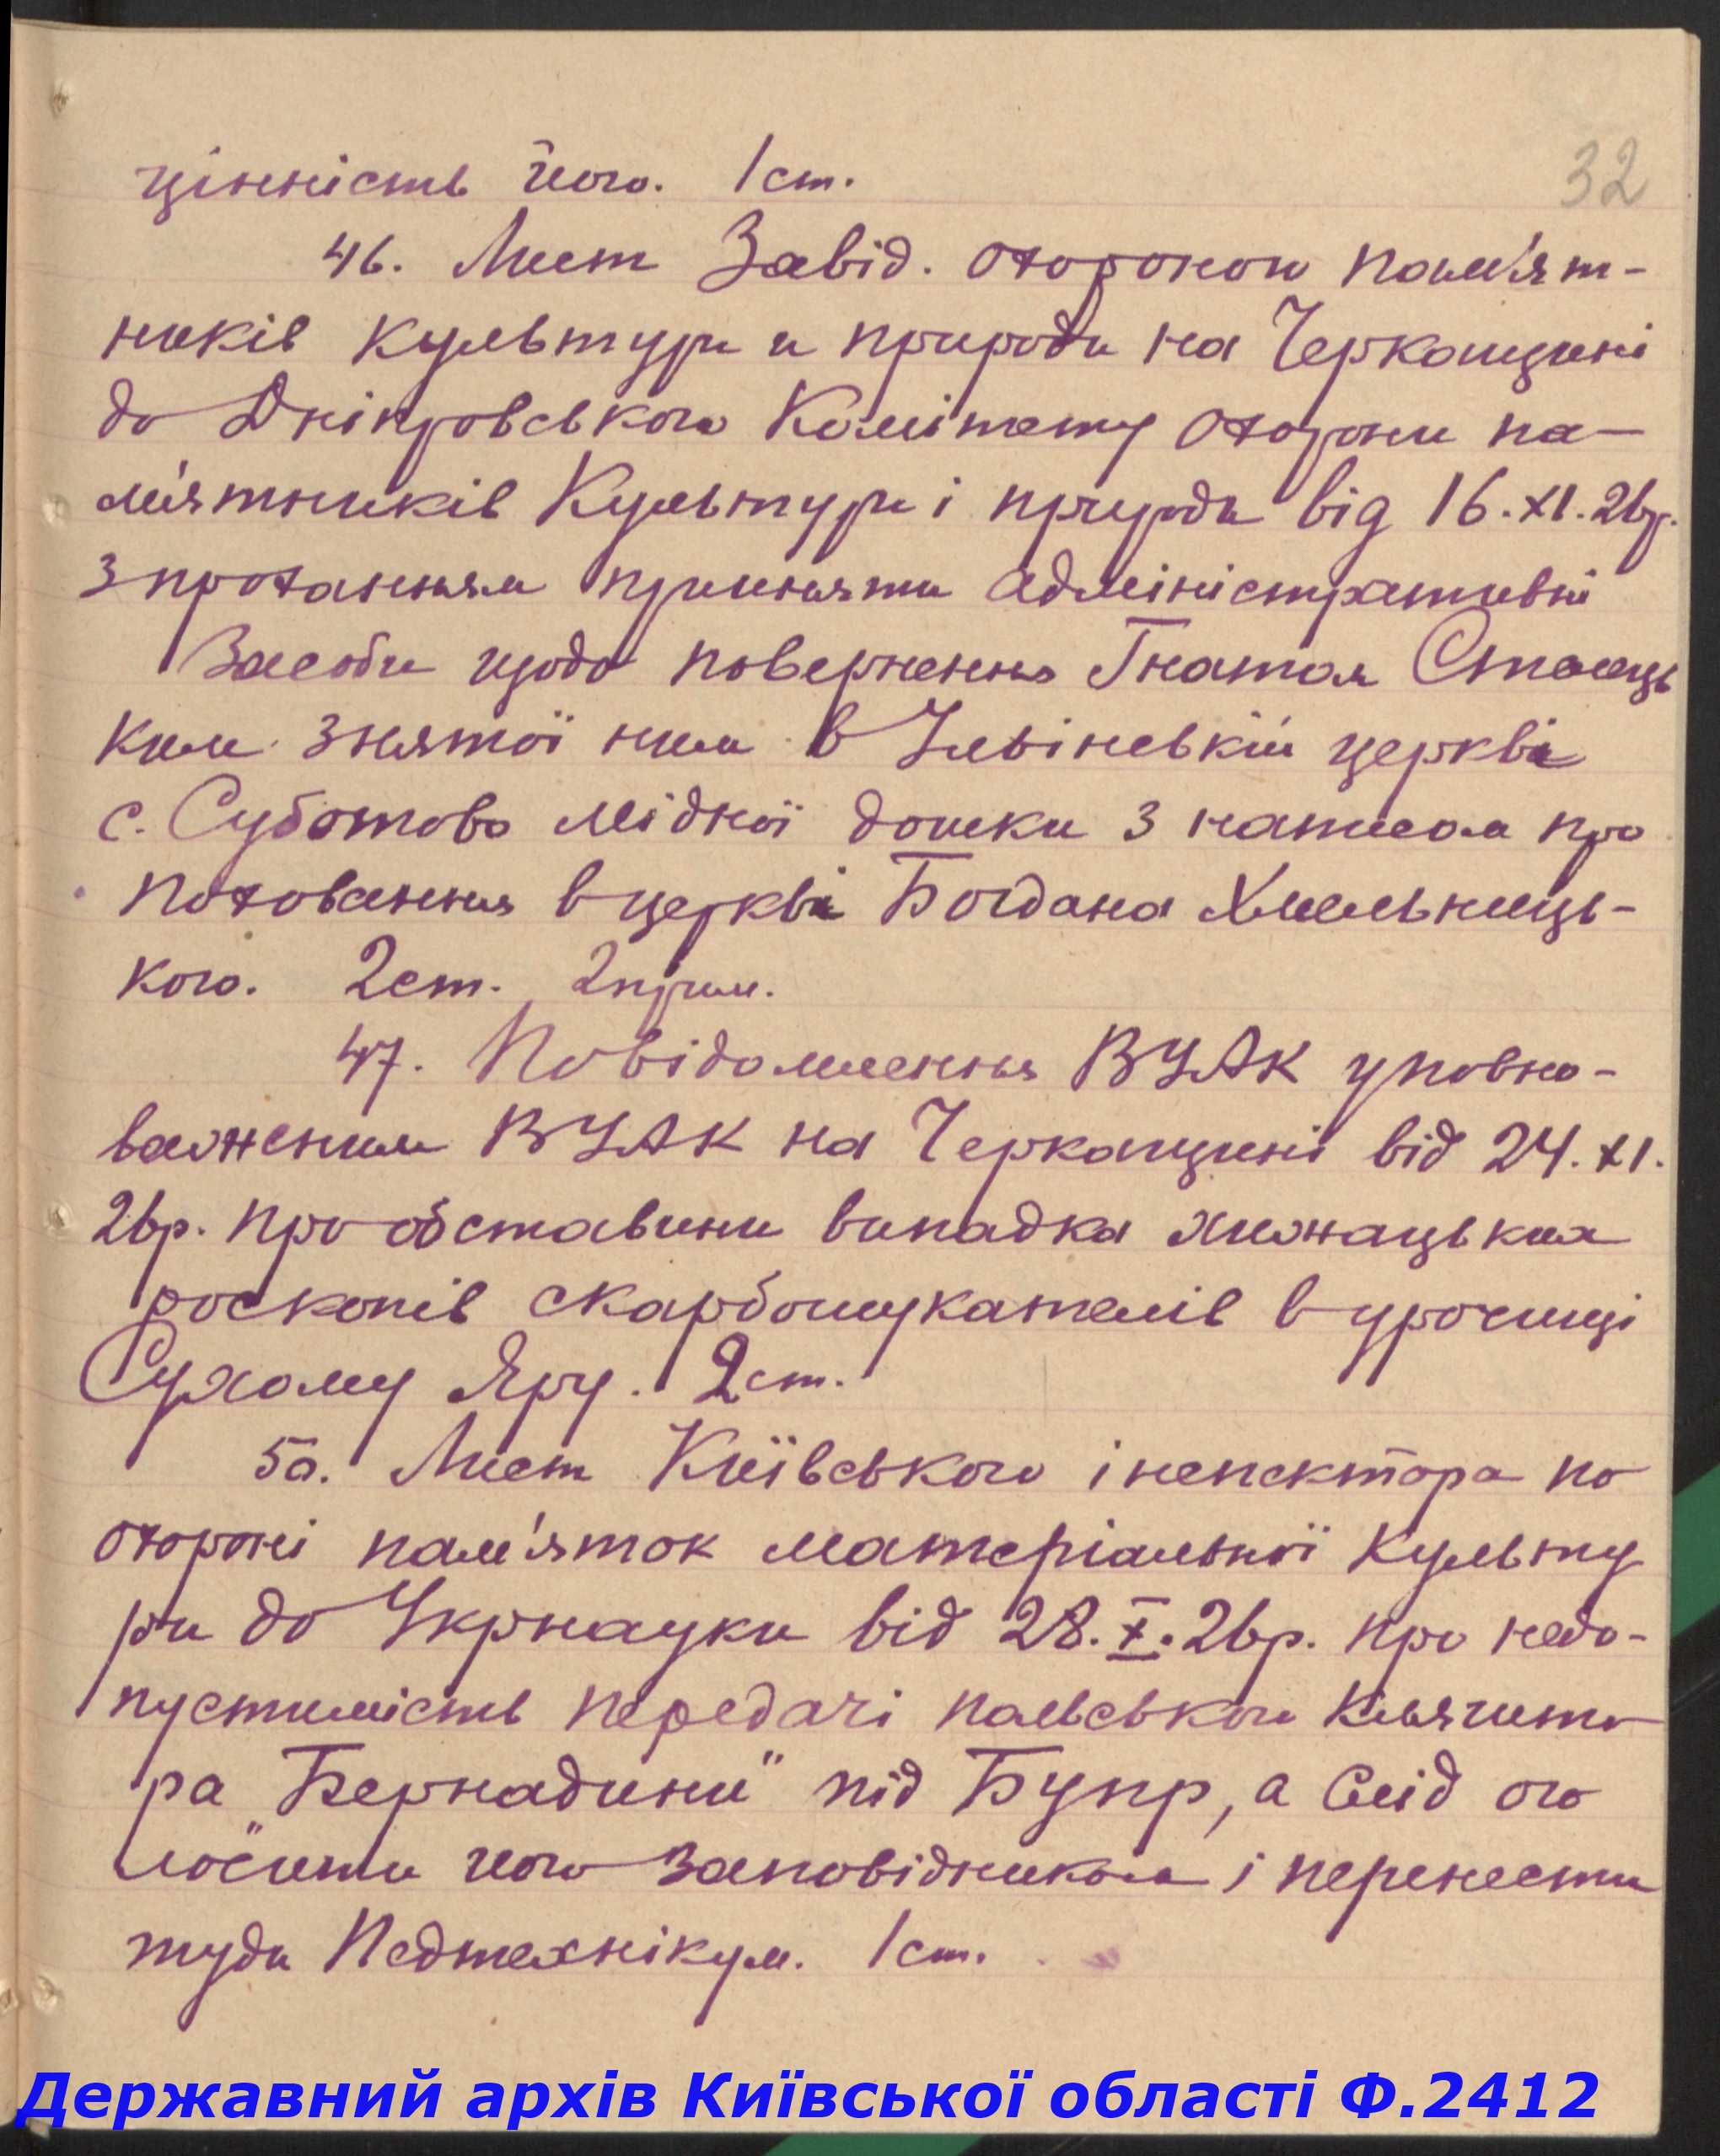 32
цінність його. 1 ст.
46. Лист Завід. охороною пам'ят-
ників культури и природи на Черкащині
до Дніпровського Комітету охорони па-
м'ятників культури і природи від 16.XI.26р.
з проханням прийняти адміністративні
засоби щодо повернення Гнатом Стелець
ким знятої ним в Іллінській церкві
с. Суботово мідної дошки з написом про
поховання в церкві Богдана Хмельниць-
кого. 2 ст. 2 прим.
47. Повідомлення ВУАК уповно-
важеним ВУАК на Черкащині від 24.XI.
26р. про обставини випадка хижацьких
росколів скарбошукателів в урочищі
Сухому Яру. 2 ст.
50. Лист Київського інспектора по
охороні пам'яток матеріальної культу
ри до Укрнауки від 28.X.26р. про недо-
пустимість передачі польського кляшто
ра "Бернадини" під Бупр, а слід ого
лосити його заповідником і перенести
туди Педтехнікум. 1 ст.
Державний архів Київської області Ф.2412